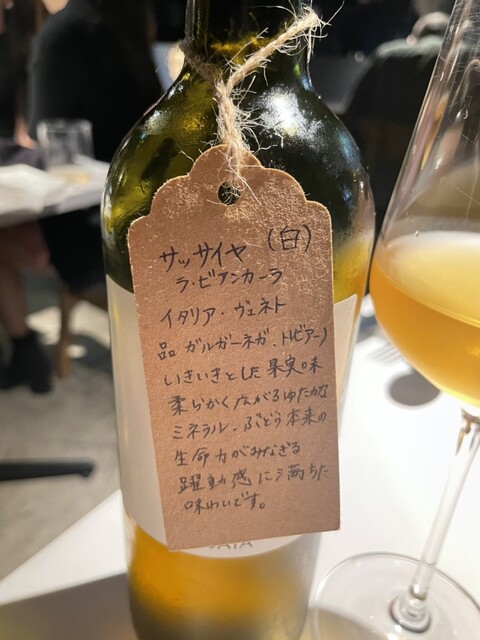 サッサイヤ (白)
ラ・ビアンカーラ
イタリア・ヴェネト
品 ガルガーネガ、トレビアーノ
いきいきとした果実味
柔らかく広がるゆたかな
ミネラル・ぶどう本来の
生命力がみなぎる
躍動感に満ちた
味わいです。
SAIA